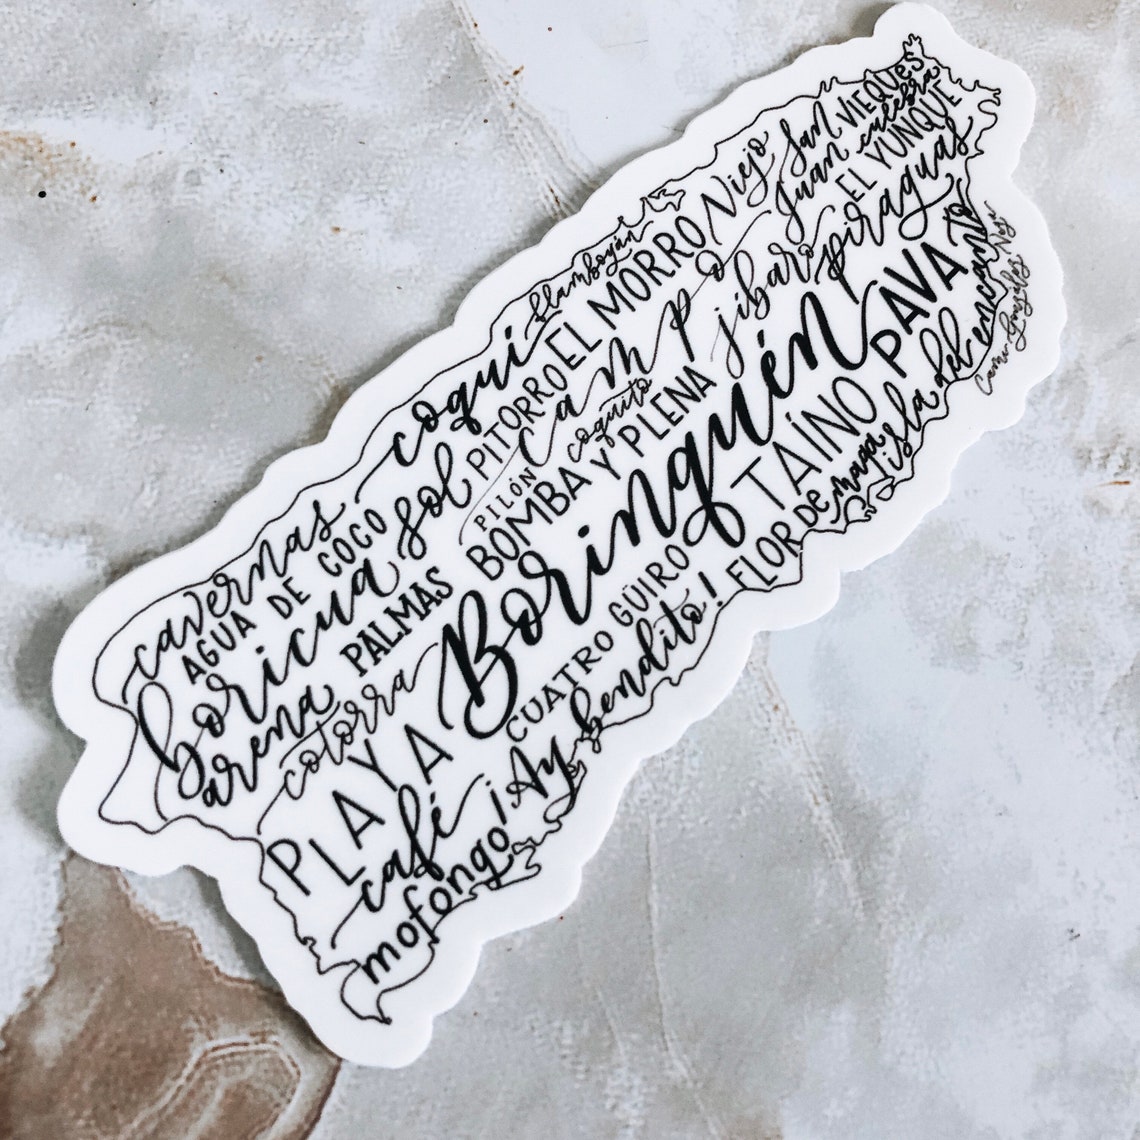 cavernas
coquí
flamboyán
AGUA DE COCO
sol
PITORRO
EL MORRO
Viejo San Juan
VIEQUES
culebra
EL YUNQUE
boricua
PILÓN
campo
coquito
jíbaro
piraguas
arena
PALMAS
BOMBA Y PLENA
cotorra
Borinquén
PAVA
PLAYA
CUATRO
GÜIRO
TAÍNO
café
¡Ay bendito!
FLOR DE maga
isla del encanto
mofongo